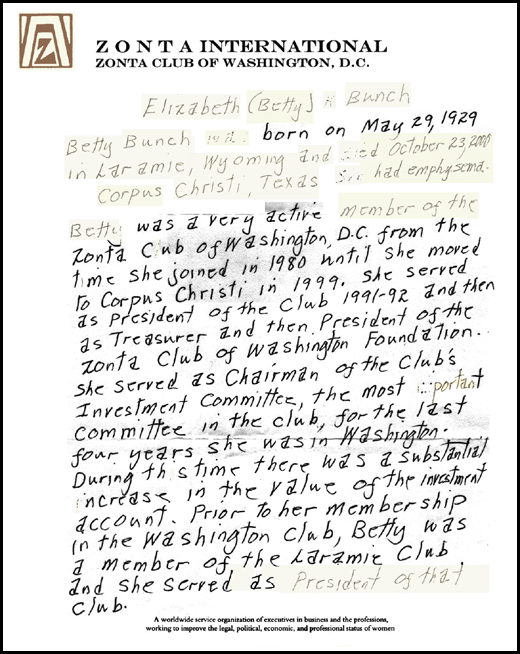 ZONTA INTERNATIONAL
ZONTA CLUB OF WASHINGTON, D.C.
Elizabeth (Betty) K Bunch
Betty Bunch was born on May 29, 1929
in Laramie, Wyoming and died October 23, 2000
Corpus Christi, Texas She had emphysema.
Betty was a very active member of the
Zonta Club of Washington, D.C. from the
time she joined in 1980 until she moved
to Corpus Christi in 1999. She served
as President of the Club 1991-92 and then
as Treasurer and then President of the
Zonta Club of Washington Foundation.
She served as Chairman of the Club's
Investment Committee, the most important
committee in the club, for the last
four years she was in Washington.
During this time there was a substantial
increase in the value of the investment
account. Prior to her membership
in the Washington Club, Betty was
a member of the Laramie Club
and she served as President of that
Club.
A worldwide service organization of executives in business and the professions,
working to improve the legal, political, economic, and professional status of women